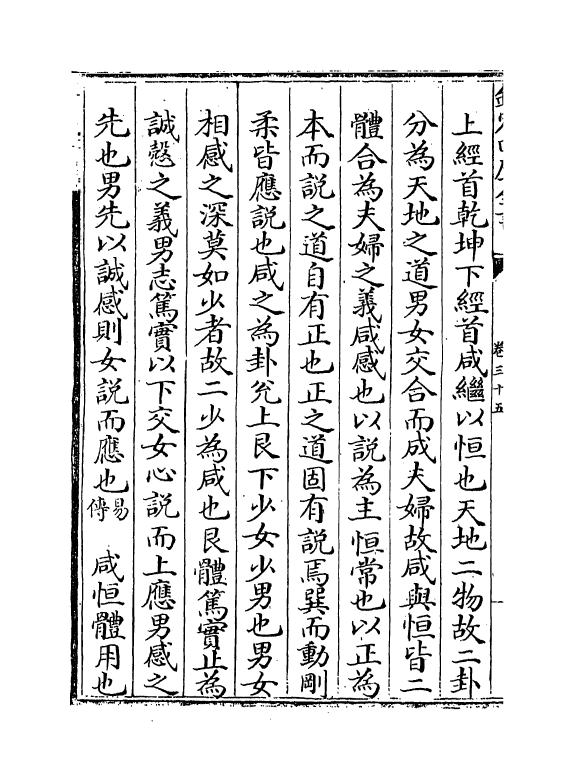 卷三十五
上經首乾坤下經首咸繼以恒也天地二物故二卦
分為天地之道男女交合而成夫婦故咸與恒皆二
體合為夫婦之義咸感也以説為主恒常也以正為
本而説之道自有正也正之道固有説焉巽而動剛
柔皆應説也咸之為卦兊上艮下少女少男也男女
相感之深莫如少者故二少為咸也艮體篤實止為
誠慤之義男志篤實以下交女心説而上應男感之
先也男先以誠感則女説而應也易傳 咸恒體用也